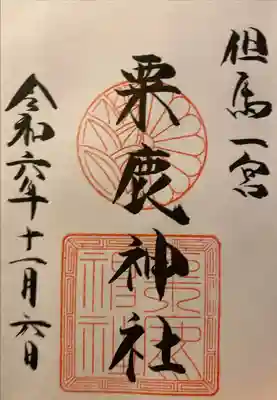 但馬一宮
粟鹿神社
令和六年十一月六日